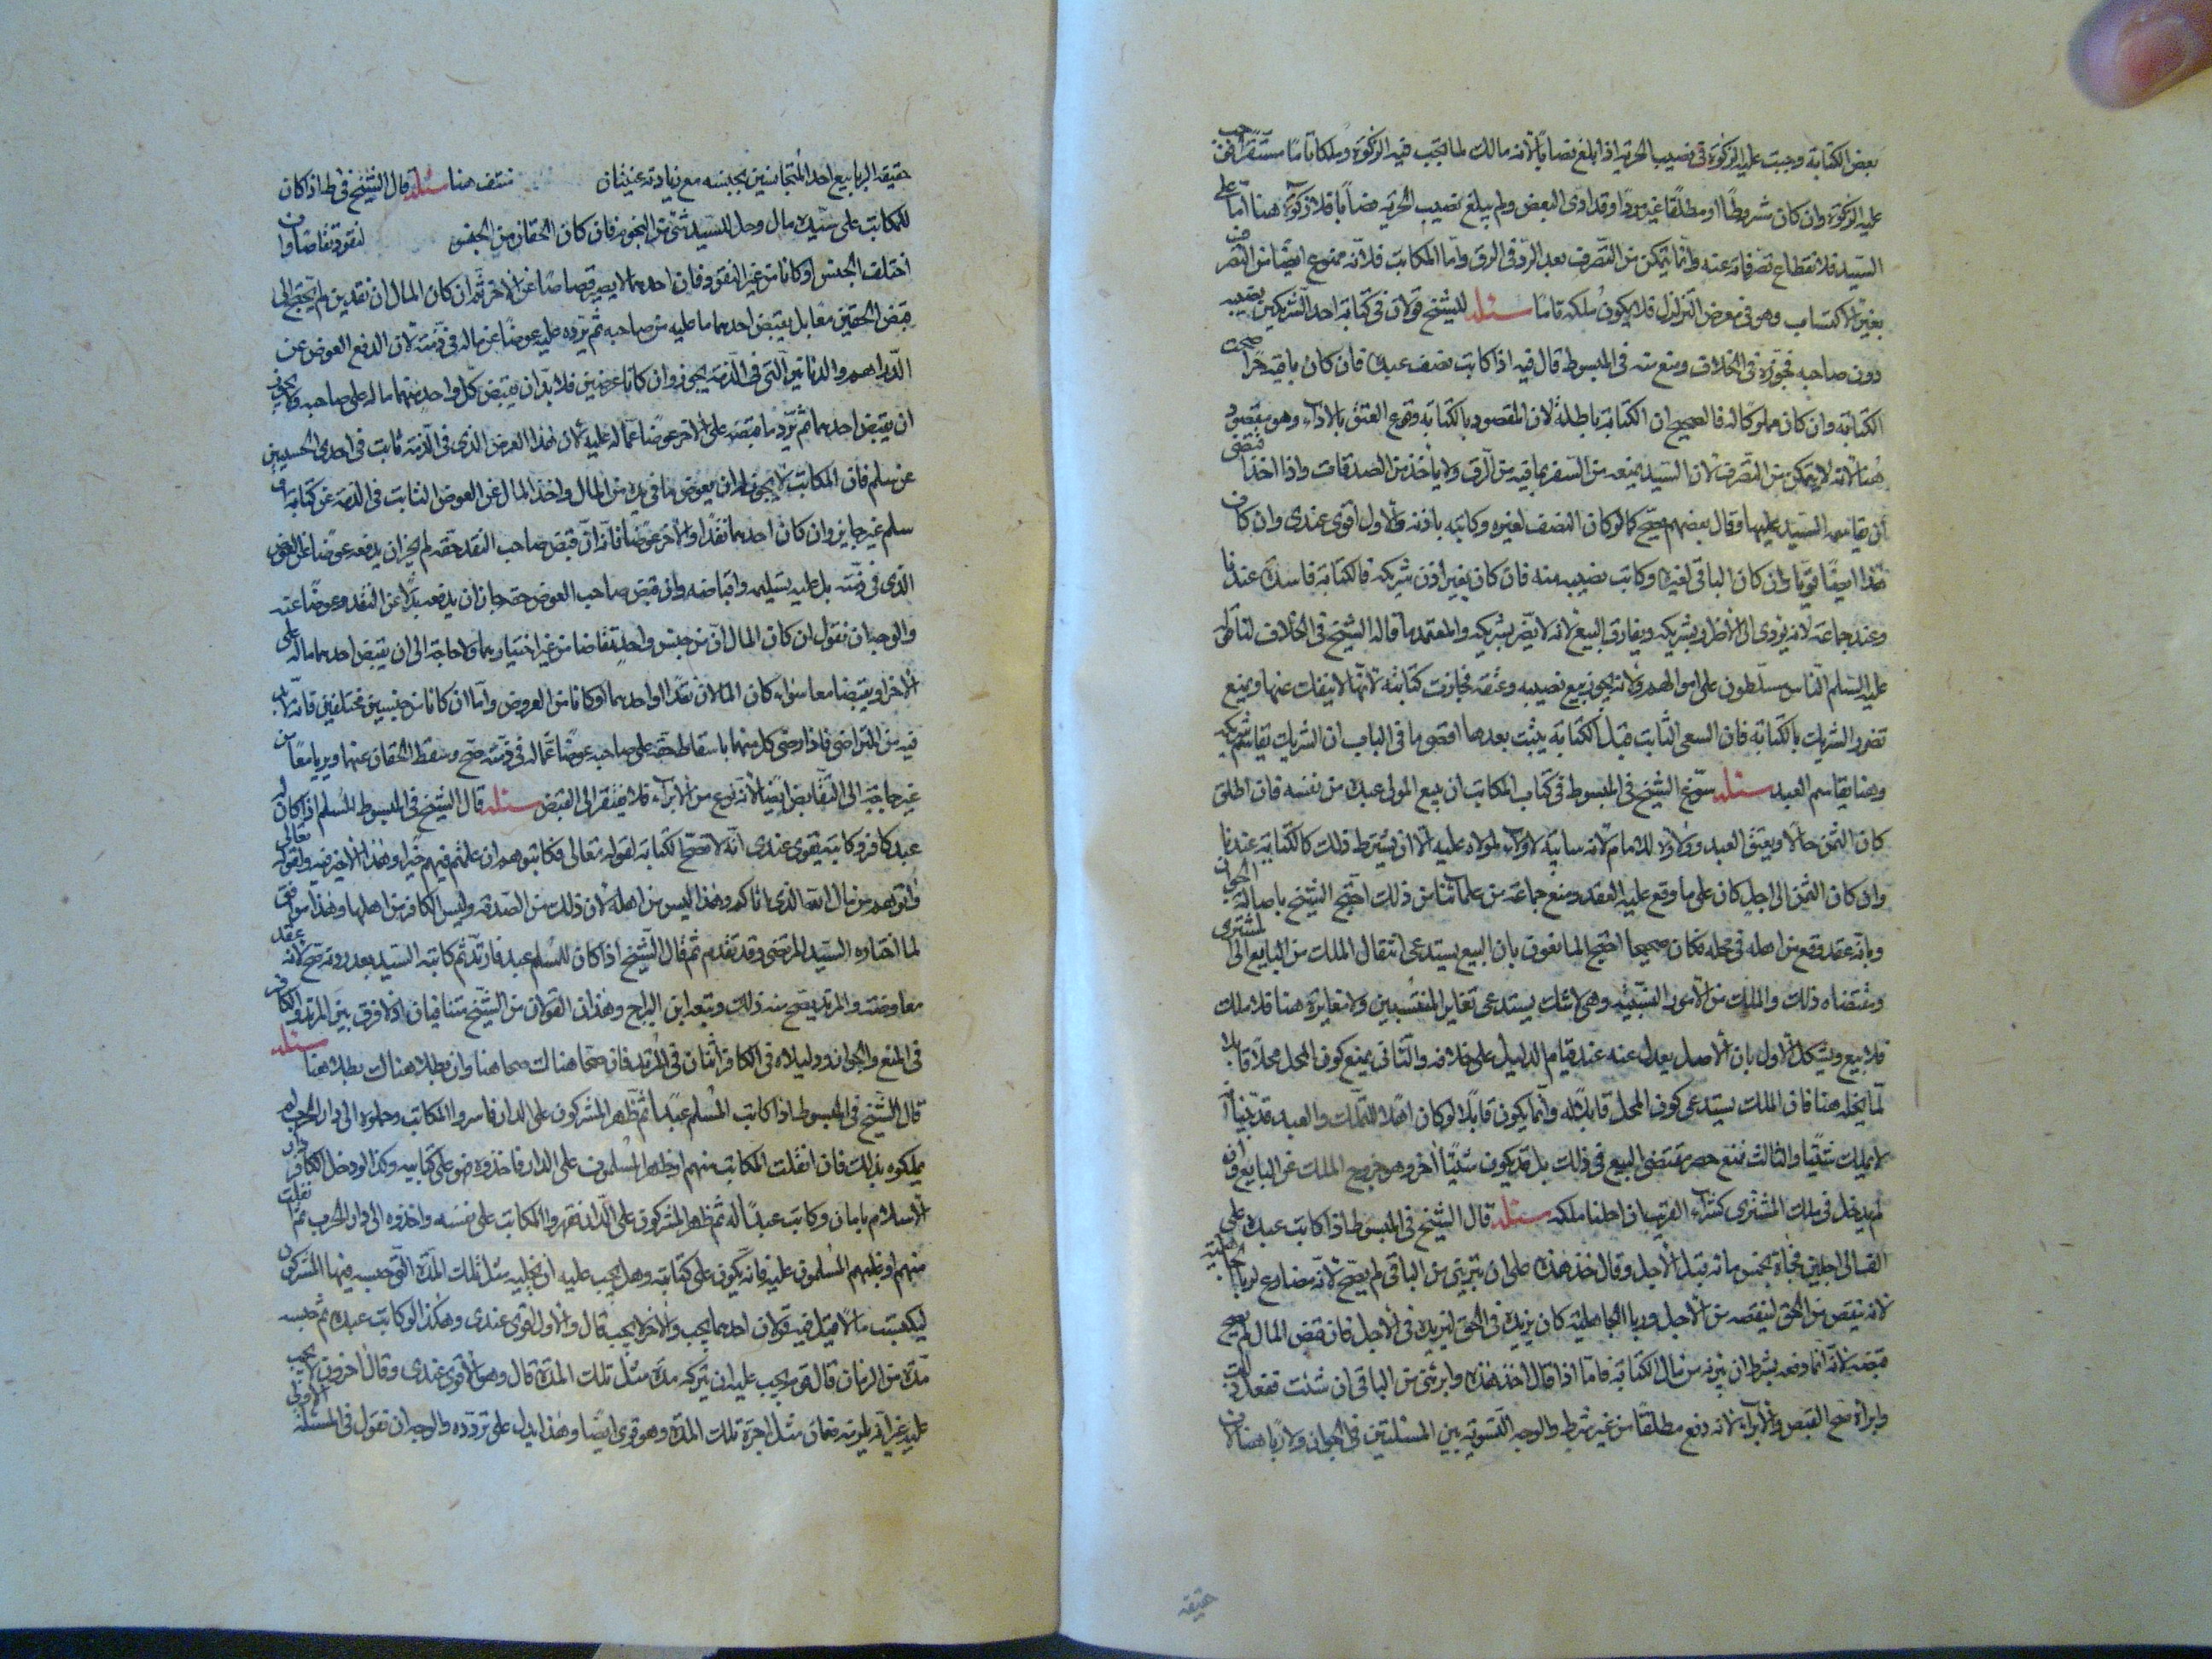 بعض الكتابة وجبت عليه الزكوة في نصيب الحرية اذا بلغ نصابا لانه مالك لما تجب فيه الزكوة وملكا تاما مستقرا فتجب
عليه الزكوة وان كان مشروطا او مطلقا غير مؤد او قد ادى البعض ولم يبلغ نصيب الحرية نصابا فلا زكوة هنا اما على
السيد فلانقطاع تصرفاته عنه وانما يتمكن من التصرف بعد الرد في الرق واما المكاتب فلانه ممنوع ايضا من التصرف
بغير الاكتساب وهو في معرض التزلزل فلا يكون ملكه تاما مسئلة للشيخ قولان في كتابة احد الشريكين نصيبه
دون صاحبه فجوزه في الخلاف ومنع منه في المبسوط قال فيه اذا كاتب نصف عبده فان كان باقيه حرا صحت
الكتابة وان كان مملوكا له فالصحيح ان الكتابة باطلة لان المقصود بالكتابة وقوع العتق بالاداء وهو مفقود
هنا لانه لا يتمكن من التصرف لان السيد يمنعه من السفر بما فيه من الرق ولا يأخذ من الصدقات واذا اخذ اقتضى
ان يقاسمه السيد عليها وقال بعضهم يصح كما لو كان النصف لغيره وكاتبه باذنه والاول اقوى عندي وان كان
هذا ايضا قويا وان كان الباقي لغيره وكاتب نصيبه منه فان كان بغير اذن شريكه فالكتابة فاسدة عندنا
وعند جماعة لانه يؤدي الى الاضرار بشريكه ويفارق البيع لانه لا يضر بشريكه والمعتمد ما قاله الشيخ في الخلاف لنا قوله
عليه السلم الناس مسلطون على اموالهم ولانه يجوز بيع نصيبه وعتقه فجازت كتابته لانها لا ينفك عنها ويمنع
تضرر الشريك بالكتابة فان السعى الثابت قبل الكتابة يثبت بعدها اقصى ما في الباب ان الشريك يقاسم شريكه
وهنا يقاسم العبد مسئلة سوغ الشيخ في المبسوط في كتاب المكاتب ان يبيع المولى عبده من نفسه فان اطلق
كان الثمن حالا ويعتق العبد وولاؤه للامام لانه سايبة لا ولاء لمولاه عليه الا ان يشترط ذلك كالكتابة عندنا
وان كان الثمن الى اجل كان على ما وقع عليه العقد ومنع جماعة من علمائنا من ذلك احتج الشيخ باصالة الجواز
وبانه عقد وقع من اهله في محله فكان صحيحا احتج المانعون بان البيع يستدعى انتقال الملك من البايع الى المشترى
ومقتضاه ذلك والملك من الامور النسبية وهي لا شك يستدعى تغاير المنتسبين ولا مغايرة هنا فلا ملك
فلا بيع ويشكل الاول بان الاصل يعدل عنه عند قيام الدليل على خلافه والثانى يمنع كون المحل محلا قابلا
لما يحله هنا فان الملك يستدعى كون المحل قابلا له وانما يكون قابلا لو كان اهلا للتملك والعبد قد بينا انه
لا يملك شيئا والثالث نمنع حصر مقتضى البيع في ذلك بل قد يكون شيئا اخر وهو خروج الملك عن البايع وان
لم يدخل في ملك المشترى كشراء القريب ان احلنا ملكه مسئلة قال الشيخ في المبسوط اذا كاتب عبده على
الف الى اجلين فجاءه بخمس مائة قبل الاجل وقال خذ هذه على ان تبرئنى من الباقى لم يصح لانه مضارع لربا الجاهلية
لانه نقص من الحق لينقصه من الاجل وربا الجاهلية كان يزيده في الحق ليزيده في الاجل فان قبض المال لم يصح
قبضه لانه انما دفعه بشرط ان يبرئه من مال الكتابة فاما اذا قال خذ هذه وابرئنى من الباقى ان شئت ففعل قبض
وابراه صح القبض والابراء لانه دفع مطلقا من غير شرط والوجه التسوية بين المسئلتين في الجواز ولا ربا هنا لان
حقيقة
حقيقة الربا بيع احد المتجانسين بجنسه مع زيادة عينية منتف هنا مسئلة قال الشيخ في ط اذا كان
للمكاتب على سيده مال وحل للسيد شئ من النجوم فان كان الحقان من الجنس لنقود تقاصا وان
اختلف الجنس او كانا من غير النقود فان احدهما لا يصير قصاصا عن الاخر ثم ان كان المال ان نقدين لم يحتج الى
قبض الحقين معا بل يقبض احدهما ما عليه من صاحبه ثم يرده عليه عوضا عن ماله في ذمته لان الدفع العوض عن
الدراهم والدنانير التى في الذمة يجوز وان كانا عرضين فلا بد ان يقبض كل واحد منهما ماله على صاحبه ولا يجوز
ان يقبض احدهما ثم يرد ما قبضه على الاخر عوضا عما له عليه لان هذا العرض الذي في الذمة ثابت في احدى الحسبتين
عن سلم فان المكاتب لا يجوز له ان يعوض ما في يده من المال واخذ المال عن العوض الثابت في الذمة عن كتابة او
سلم غير جايز وان كان احدهما نقدا والاخر عوضا فانه ان قبض صاحب النقد حقه لم يجز ان يدفعه عوضا عن العوض
الذي في ذمته بل عليه تسليمه واقباضه وان قبض صاحب العوض حقه جاز ان يدفعه بدلا عن النقد وعوضا عنه
والوجه ان نقول ان كان المالان من جنس واحد تقاصا من غير اختيارهما ولا حاجة الى ان يقبض احدهما ماله على
الاخر او يقبضا معا سواء كان المالان نقدا او احدهما او كانا من العروض واما ان كانا من جنسين مختلفين فانه لا بد
فيه من التراضى فاذا رضى كل منهما باسقاط حقه على صاحبه عوضا عما له في ذمته صح وسقط الحقان عنهما وبريا معا من
غير حاجة الى التقابض ايضا لانه نوع من الابراء فلا يفتقر الى القبض مسئلة قال الشيخ في المبسوط المسلم اذا كان له
عبد كافر وكاتبه يقوى عندى انه لا تصح الكتابة لقوله تعالى فكاتبوهم ان علمتم فيهم خيرا وهذا لا خير فيه ولقوله تعالى
واتوهم من مال الله الذي اتاكم وهذا ليس من اهله لان ذلك من الصدقة وليس الكافر من اهلها وهذا موافق
لما اختاره السيد المرتضى وقد تقدم ثم قال الشيخ اذا كان للمسلم عبد فارتد ثم كاتبه السيد بعد ردته صح لانه عقد
معاوضة والمرتد يصح منه ذلك وتبعه ابن البراج وهذان القولان من الشيخ متنافيان اذ لا فرق بين المرتد والكافر
في المنع والجواز ودليلاه في الكافر اتيان في المرتد فان صحا هناك صحا هنا وان بطلا هناك بطلا هنا مسئلة
قال الشيخ في المبسوط اذا كاتب المسلم عبدا ثم ظهر المشركون على الدار فاسروا المكاتب وحملوه الى دار الحرب لم
يملكوه بذلك فان انفلت المكاتب منهم او ظهر المسلمون على الدار فاخذوه فهو على كتابته وكذا لو دخل الكافر دار
الاسلام بامان وكاتب عبدا له ثم ظهر المشركون على الدار فقهروا المكاتب على نفسه واخذوه الى دار الحرب ثم انفلت
منهم او غلبهم المسلمون عليه فانه يكون على كتابته وهل يجب عليه ان يخليه مثل تلك المدة التي حبسه فيها المشركون
ليكتسب مالا قيل فيه قولان احدهما يجب والاخر لا يجب قال والاول اقوى عندى وهكذا لو كاتب عبده ثم حبسه
مدة من الزمان قال قوم يجب عليه ان يتركه مدة مثل تلك المدة قال وهو الاقوى عندى وقال اخرون لا يجب
عليه غير انه يلزمه ضمان مثل اجرة تلك المدة وهو قوى ايضا وهذا يدل على تردده والوجه ان نقول في المسئلة الاولى